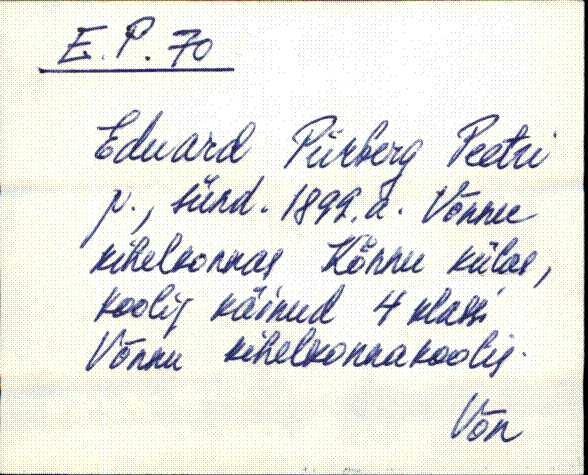 E.P. 70
Eduard Piirberg Peetri
p., sünd. 1899.a. Võnnu
kihelkonnas Kõnnu külas,
koolis käinud 4 klassi
Võnnu kihelkonnakoolis.
Võn